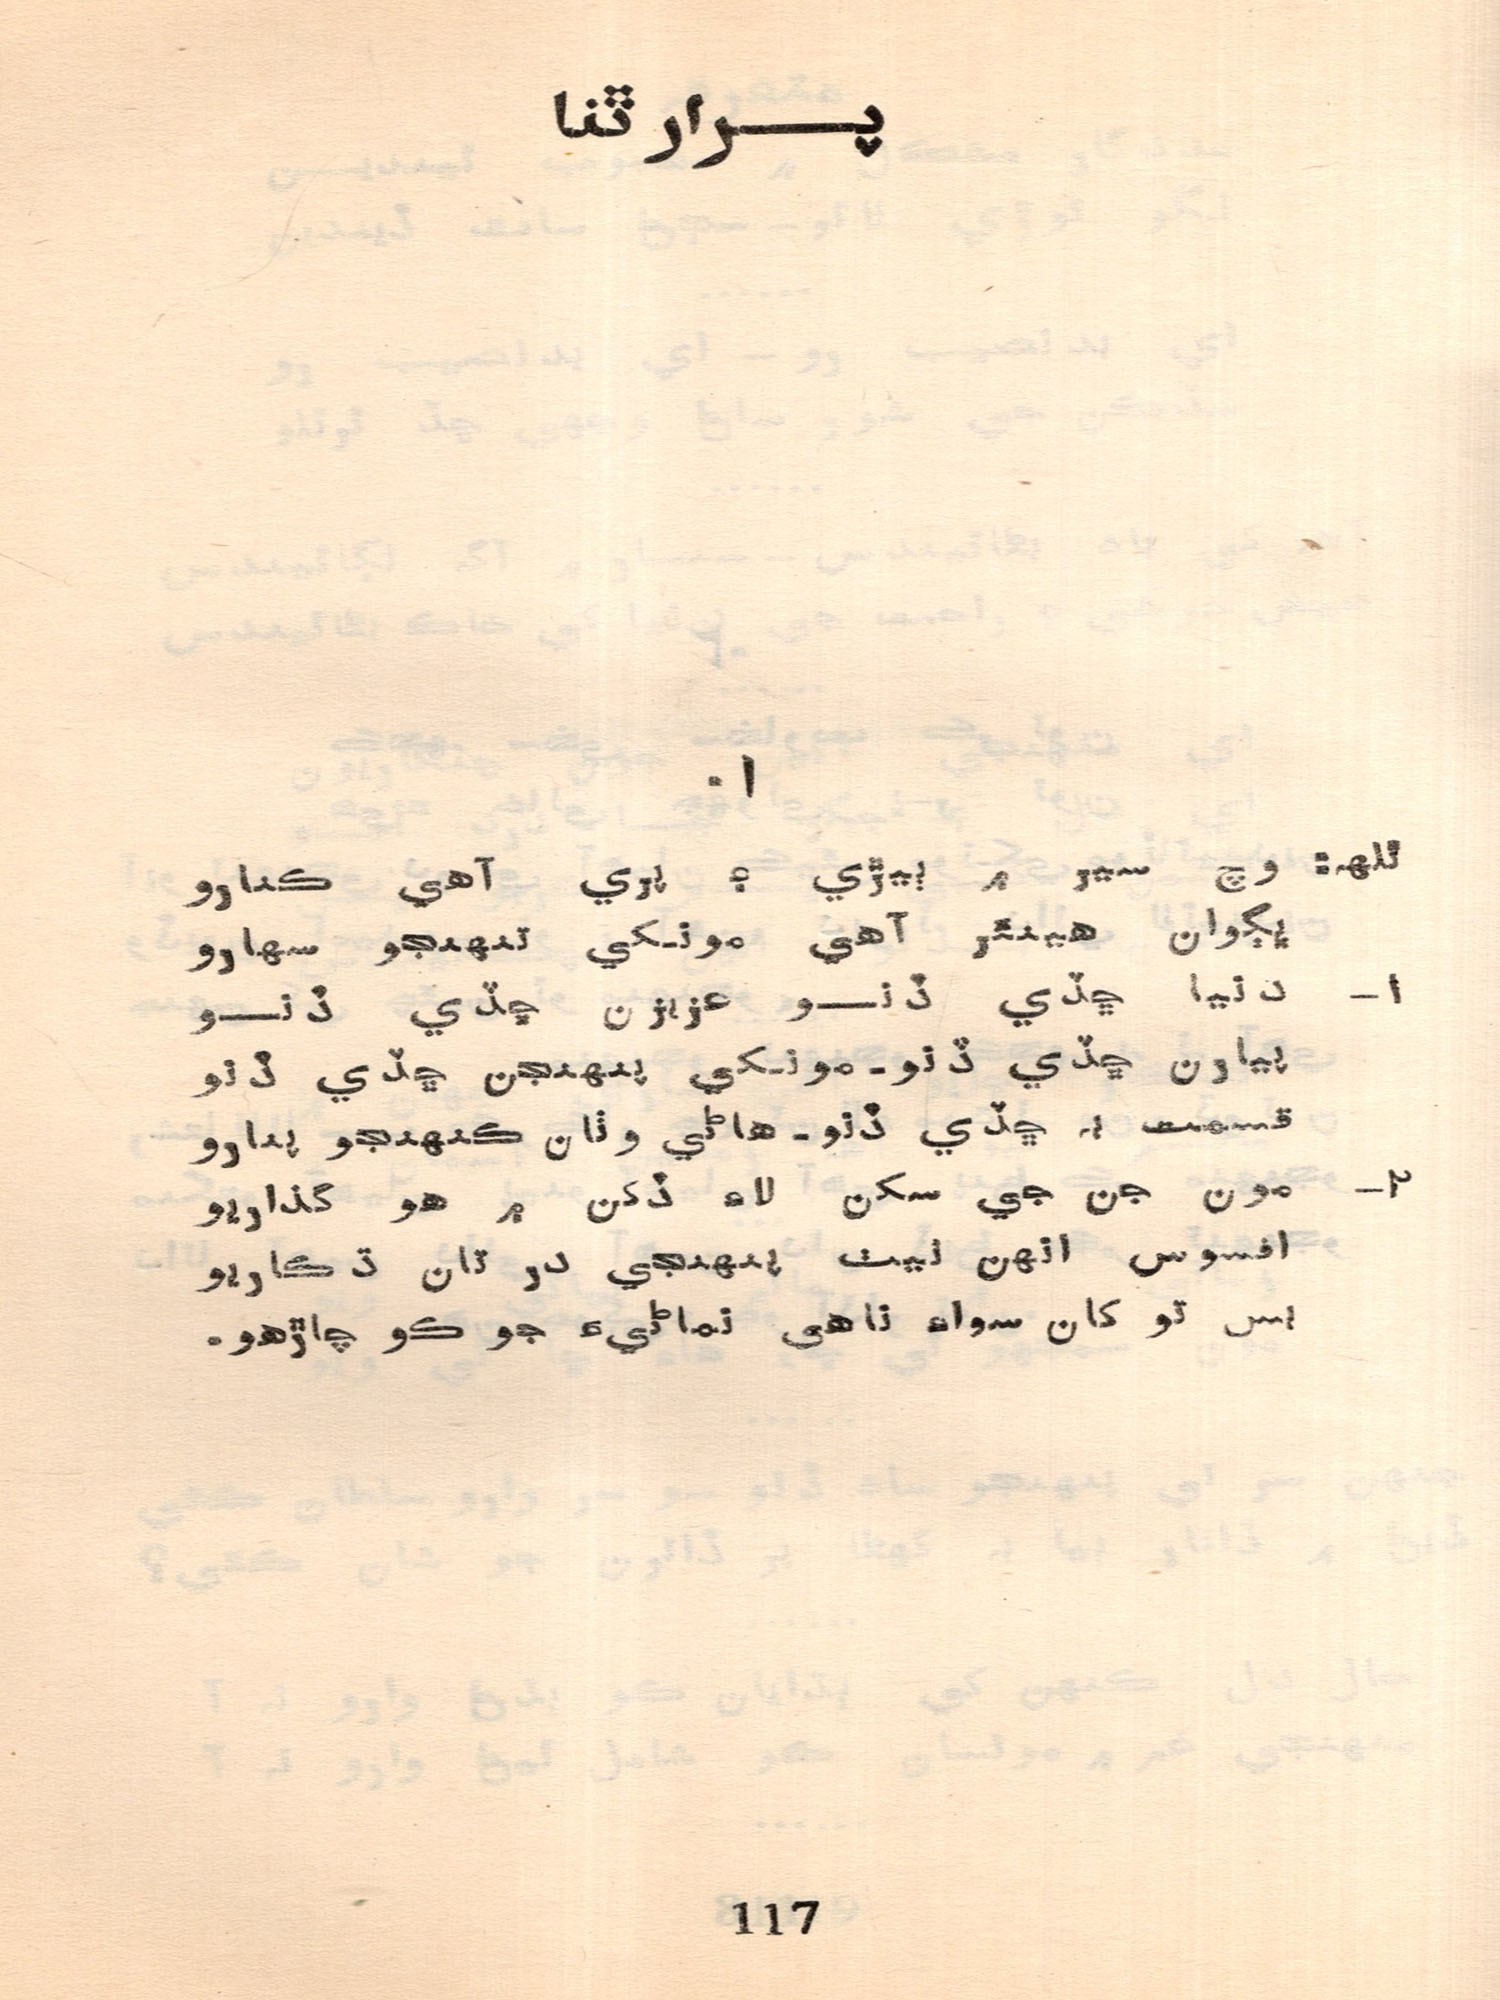 پرارٿنا
۱.
ٿلهه: وچ سير ۾ ٻيڙي ۽ پري آهي ڪنارو
ڀڳوان هينئر آهي مونکي تنهنجو سهارو
۱- دنيا ڇڏي ڏنو عزيزن ڇڏي ڏنو
پيارن ڇڏي ڏنو۔ مونکي پنهنجن ڇڏي ڏنو
قسمت به ڇڏي ڏنو۔ هاڻي وٺان ڪنهنجو پنارو
۲- مون جن جي سکن لاءِ ڏکن ۾ هو گذاريو
افسوس انهن نيٺ پنهنجي در تان ڌڪاريو
بس تو کان سواءِ ناهي نماڻيءَ جو ڪو چاڙهو.
117